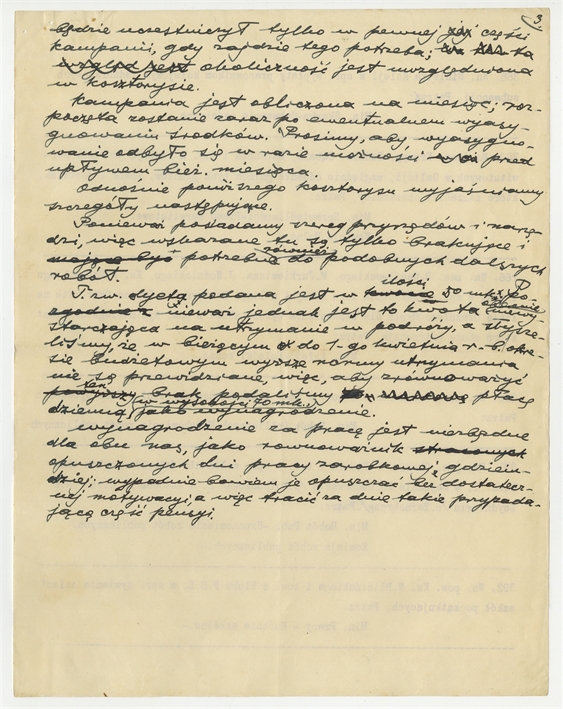 3
będzie uczestniczył tylko w pewnej jej części
kampanii, gdy zajdzie tego potrzeba; ta
wzgląd jest okoliczność jest uwzględniona
w kosztorysie.
Kampania jest obliczona na miesiąc; roz-
poczęta zostanie zaraz po ewentualnem wyasy-
gnowaniu środków. Prosimy, aby wyasygno-
wanie odbyło się w razie możności przed
upływem bież. miesiąca.
Odnośnie poniższego kosztorysu wyjaśniamy
szczegóły następujące.
Ponieważ posiadamy szereg przyrządów i narzę-
dzi, więc wskazane tu są tylko brakujące i
mające być potrzebne również do podobnych dalszych
robót.
T. zw. dyeta podana jest w kwocie ilości 50 mk. Po-
niewaz jednak jest to kwota
starczająca na utrzymanie w podróży, a słysze-
liśmy, że w bieżącym do 1-go kwietnia r. b. okre-
sie budżetowym wyższe normy utrzymania
nie są przewidziane, więc, aby zrównoważyć
ten brak podaliśmy płacę
(w wysokości 70 mk.)
dzienną, jako wynagrodzenie.
Wynagrodzenie za pracę jest niezbędne
dla obu nas, jako równoważnik straconych
opuszczonych dni pracy zarobkowej gdziein-
dziej; wypadnie bowiem je opuszczać bez dostatecz-
nej motywacji, a więc tracić za dnie takie przypada-
jącą część pensyi